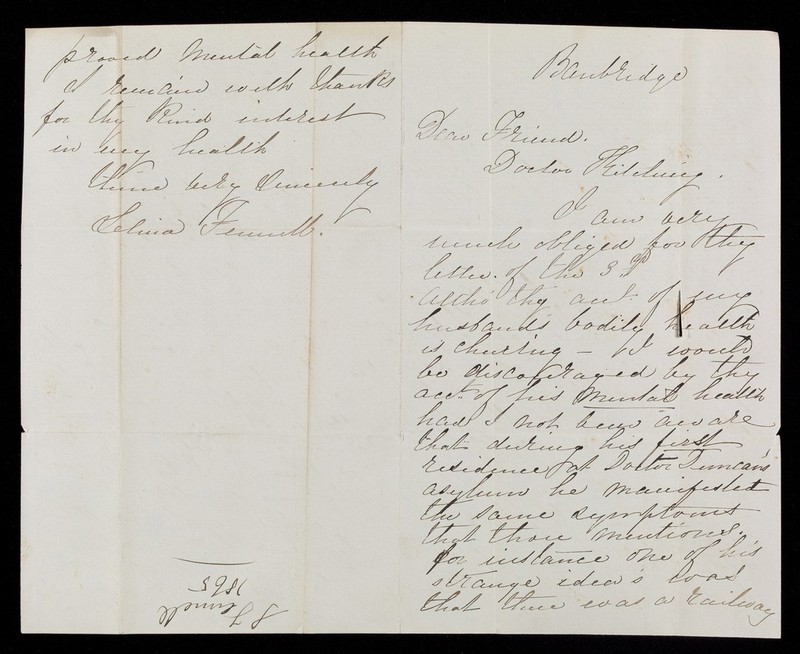 Banbridge
Dear Friend.
Doctor Kitching.
I am very
much obliged for thy
letter. of the 3rd
altho' thy acct. of my
husbands bodily health
is cheering – I would
be discouraged by thy
acct. of his mental health
had I not been aware
that during his first
residence at Doctor Duncan's
asylum he manifested
the same symptoms
that thou mentions.
for instance one of his
strange idea's was
that there was a railway
proved mental health
I remain with thanks
for thy kind interest
in my health
thine very sincerely
Selina Fennell.
S Fennell
1865